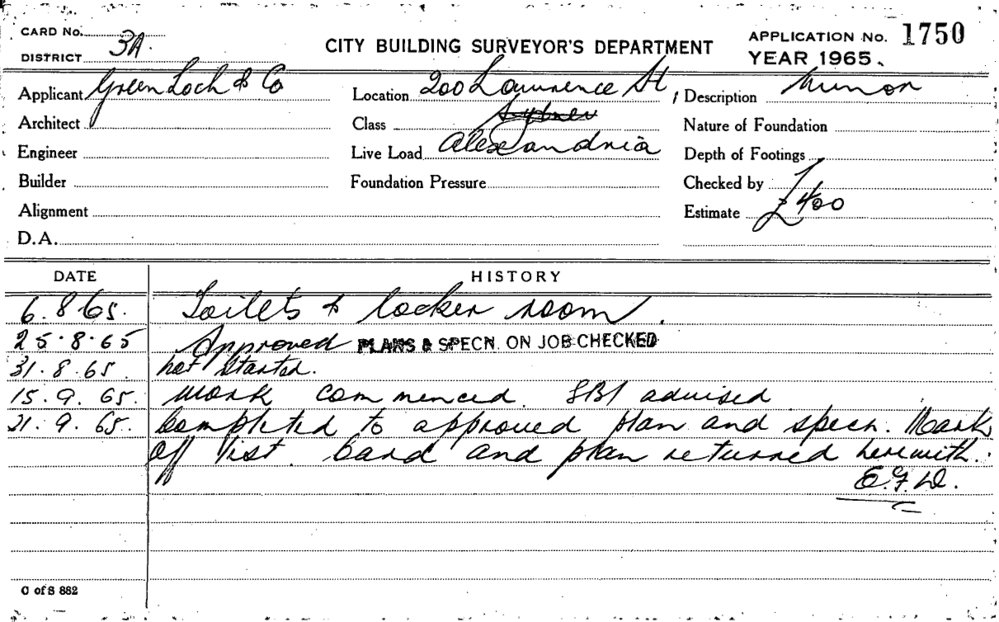 CARD No.
DISTRICT 3A.
CITY BUILDING SURVEYOR'S DEPARTMENT
APPLICATION No. 1750
YEAR 1965.
Applicant Green Loch & Co
Location 200 Lawrence St,
Description Minor
Architect
Class Sydney
Nature of Foundation
Engineer
Live Load Alexandria
Depth of Footings
Builder
Foundation Pressure
Checked by
Alignment
Estimate £400
D.A.
DATE HISTORY
6.8.65. Toilets & locker room.
25.8.65 Approved PLANS & SPECN. ON JOB CHECKED
31.8.65. not started.
15.9.65. work commenced. SBI advised
21.9.65. Completed to approved plan and specn. Mark
off list. Card and plan returned herewith.
E.G.W.
C of S 882